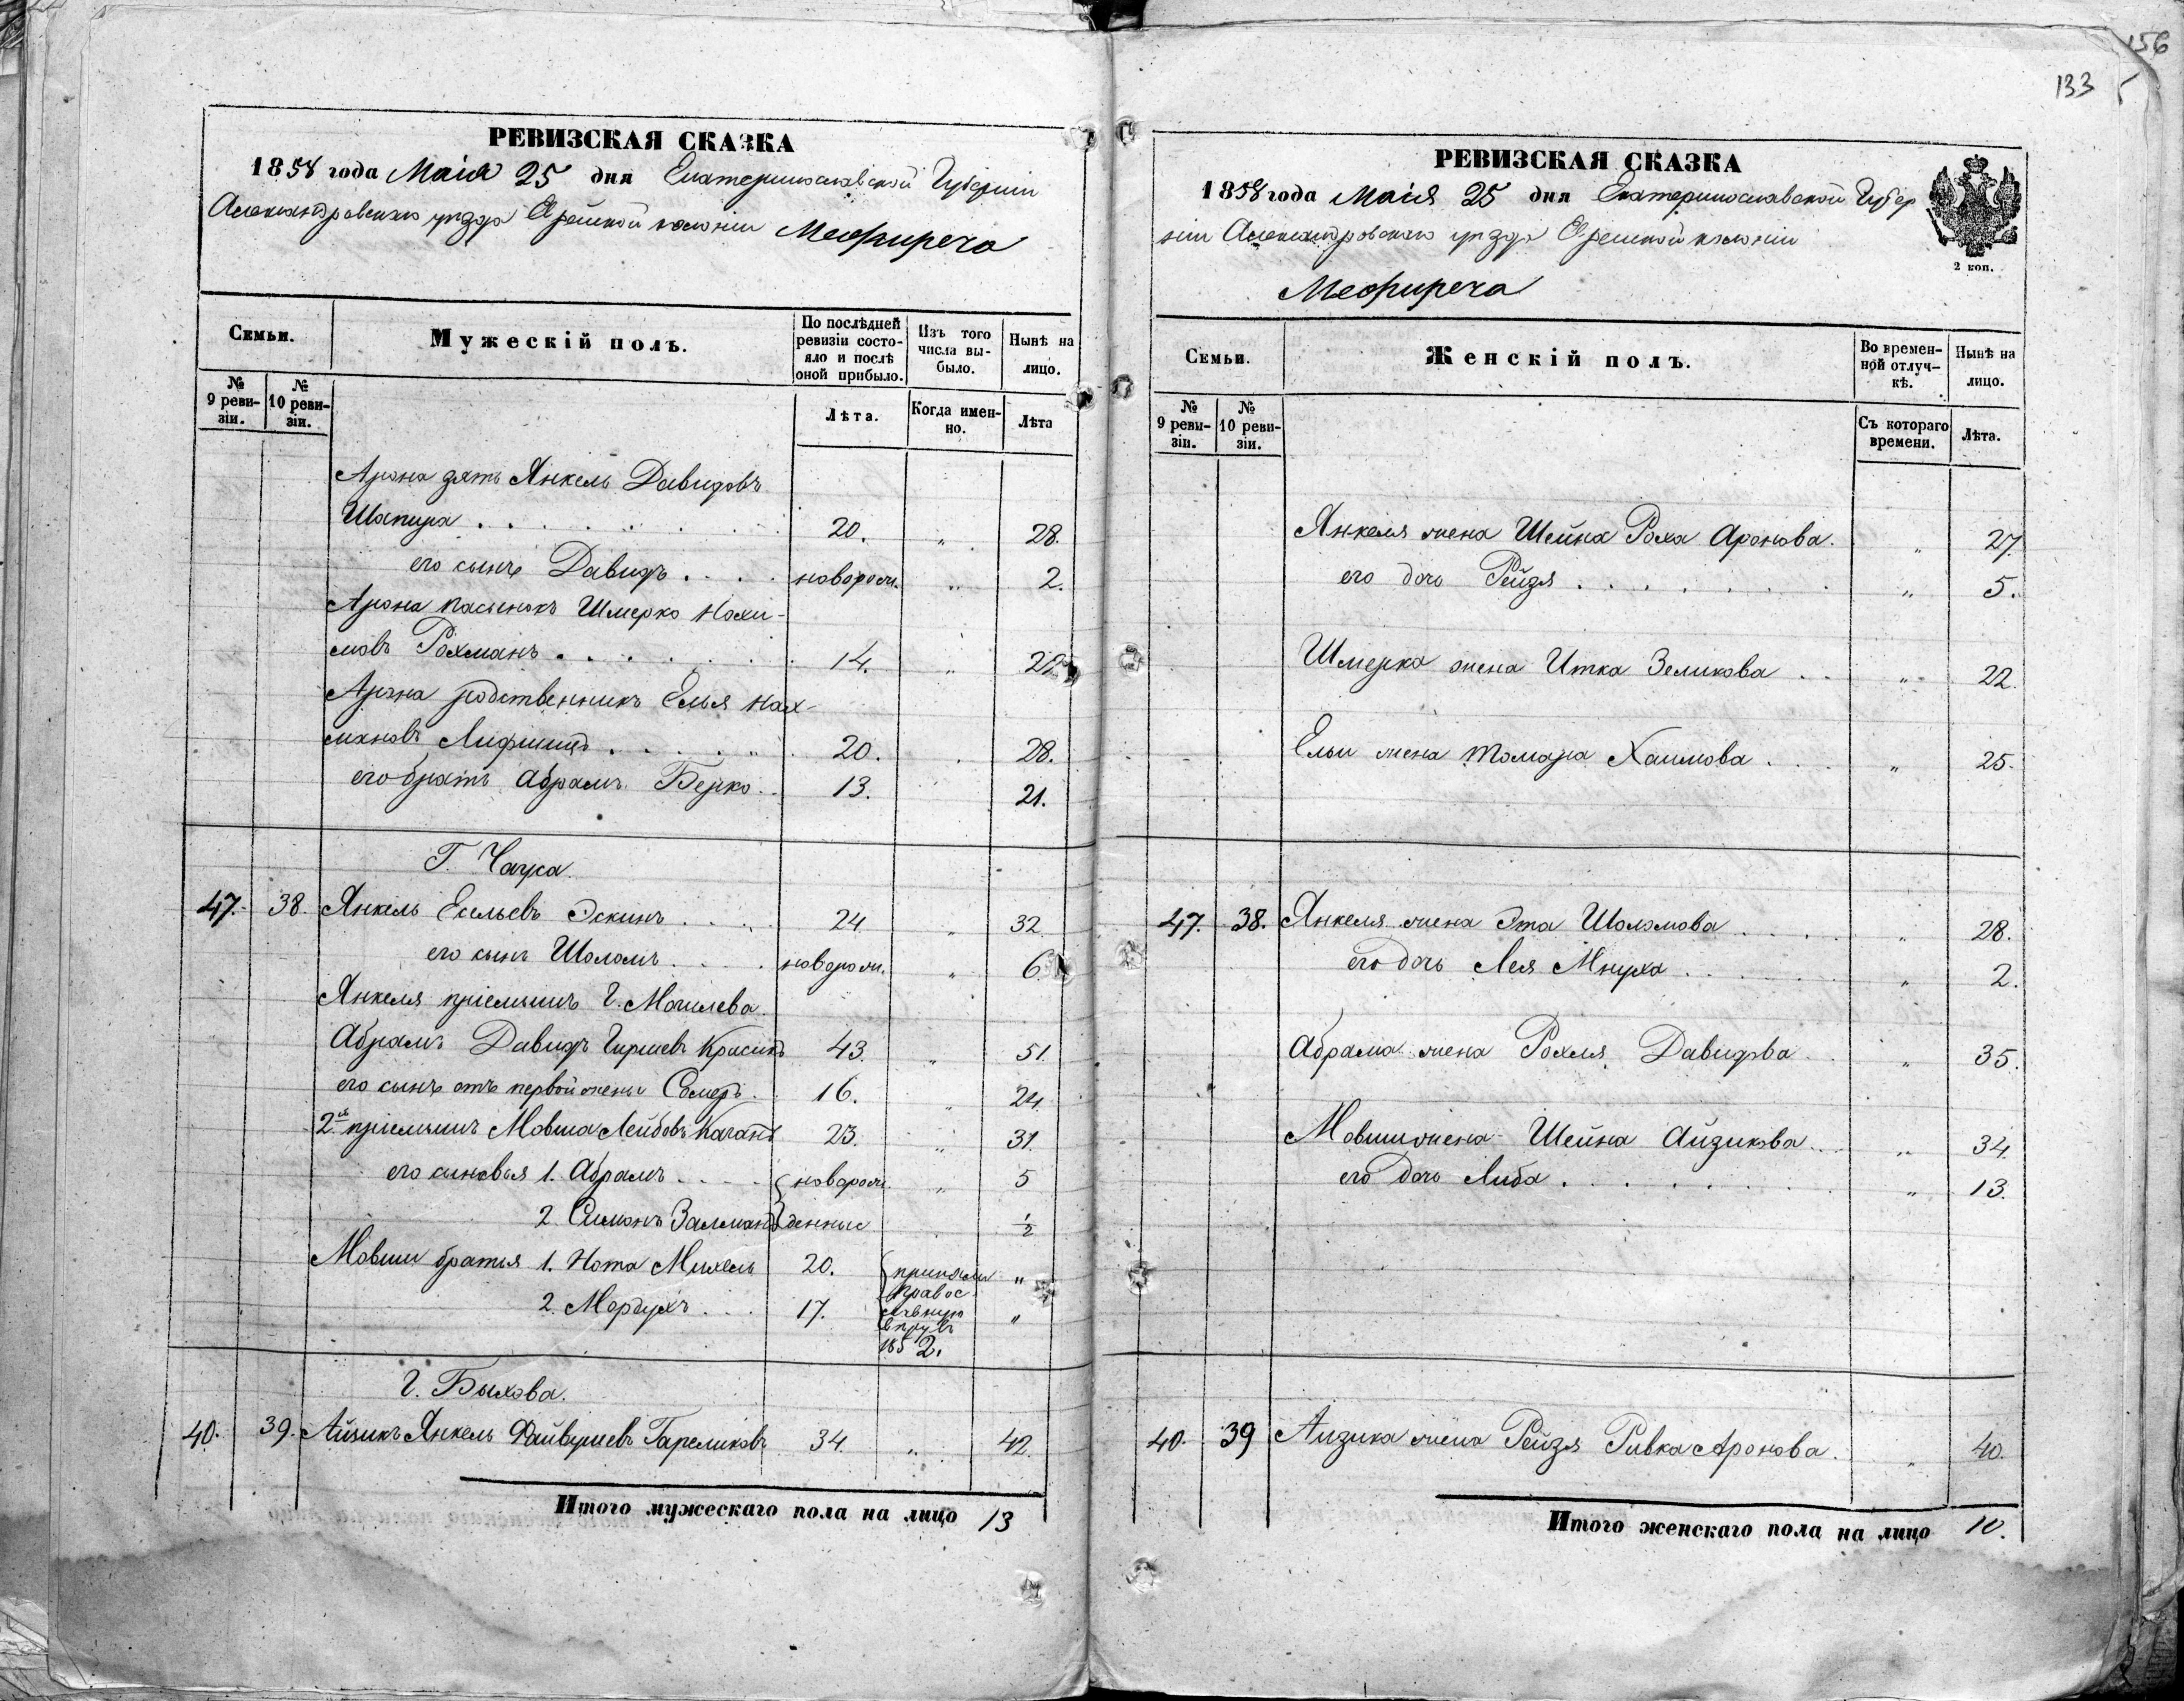 156
133
РЕВИЗСКАЯ СКАЗКА
1858 года Маія 25 дня Екатеринославской Губерніи
Александровскаго уезда Еврейской колоніи Межиречь
Семьи.
Мужескій полъ.
По послѣдней ревизіи состояло и послѣ оной прибыло.
Изъ того числа выбыло.
Нынѣ на лицо.
№ 9 ревизіи.
№ 10 ревизіи.
Лѣта.
Когда именно.
Лѣта
Арона зять Янкель Давидовъ
Шапира . . . 20. " 28.
его сынъ Давидъ . . . новорож. " 2.
Арона пасынокъ Шмерко Нохи-
мовъ Рохманъ . . . 14. "
Арона родственникъ Елья Нах-
мановъ Лифшицъ . . . 20. 28.
его братъ Абрамъ Берко . . 13. 21.
Г. Чауса.
47. 38. Янкель Ельевъ Эскинъ . . . 24 " 32
его сынъ Шоломъ . . . новорож. " 6
Янкеля пріемышъ Г. Могилева.
Абрамъ Давидъ Гиршевъ Красикъ 43. " 51.
его сынъ отъ первой жены Сомеръ . 16. " 24.
2й пріемышъ Мовша Лейбовъ Каганъ 23. " 31.
его сыновья 1. Абрамъ . . . новорож " 5
2. Симонъ Залманъ денные ½
Мовши братья 1. Нота Михель 20. приняли "
2. Мордухъ . . . 17. правос "
1852.
Г. Быхова.
40. 39. Айзикъ Янкель Файвушевъ Гареликовъ 34. " 42.
Итого мужескаго пола на лицо 13
РЕВИЗСКАЯ СКАЗКА
1858 года Маія 25 дня Екатеринославской Губер
ніи Александровскаго уезда Еврейской колоніи
Межиречь
2 коп.
Семьи.
Женскій полъ.
Во временной отлучкѣ.
Нынѣ на лицо.
№ 9 ревизіи.
№ 10 ревизіи.
Съ котораго времени.
Лѣта.
Янкеля жена Шейна Роха Аронова. " 27.
его дочь Рейзя . . . " 5.
Шмерка жена Итка Зеликова . . " 22.
Ельи жена Томара Хаимова . . " 25.
47. 38. Янкеля жена Эта Шоломова . . . " 28.
его дочь Лея Мнуха . . . " 2.
Абрама жена Рохля Давидова . " 35.
Мовши жена Шейна Айзикова . . " 34.
его дочь Либа . . . " 13.
40. 39 Айзика жена Рейзя Ривка Аронова . " 40.
Итого женскаго пола на лицо 10.